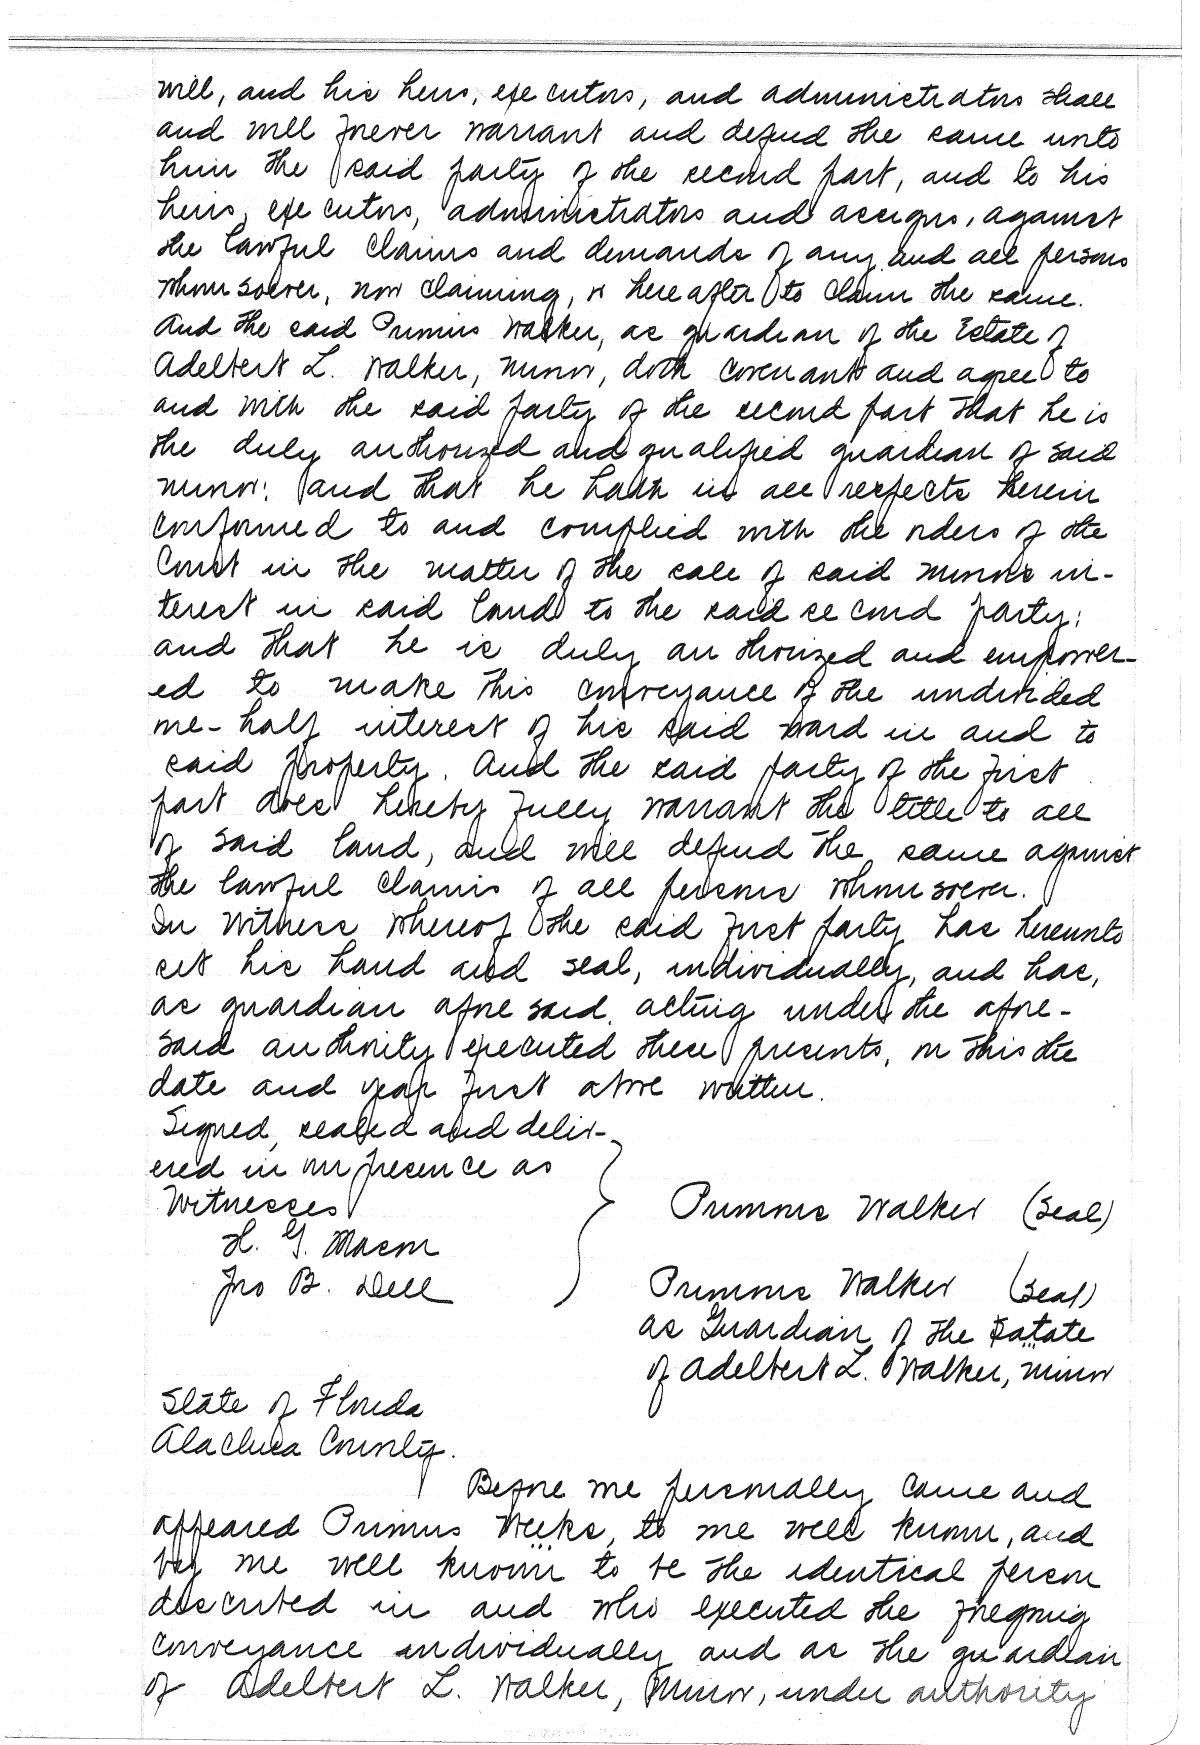 will, and his heirs, executors, and administrators shall
and will forever warrant and defend the same unto
him the said party of the second part, and to his
heirs, executors, administrators and assigns, against
the lawful claims and demands of any and all persons
whomsoever, now claiming, or hereafter to claim the same.
And the said Primus Walker, as guardian of the Estate of
Adelbert L. Walker, minor, doth covenant and agree to
and with the said party of the second part that he is
the duly authorized and qualified guardian of said
minor: and that he hath in all respects herein
conformed to and complied with the orders of the
Court in the matter of the sale of said minors in-
terest in said land to the said second party;
and that he is duly authorized and empower-
ed to make this conveyance of the undivided
one-half interest of his said ward in and to
said property. And the said party of the first
part does hereby fully warrant the title to all
of said land, and will defend the same against
the lawful claims of all persons whomsoever.
In Witness Whereof the said first party has hereunto
set his hand and seal, individually, and has,
as guardian aforesaid, acting under the afore-
said authority executed these presents, on this the
date and year first above written.
Signed, sealed and deliv-
ered in our presence as
Witnesses
H. G. Mason
Jno B. Dell
Primus Walker (Seal)
Primus Walker (Seal)
as Guardian of the Estate
of Adelbert L. Walker, minor
State of Florida
Alachua County.
Before me personally came and
appeared Primus Weeks, to me well known, and
by me well known to be the identical person
described in and who executed the foregoing
conveyance individually and as the guardian
of Adelbert L. Walker, Minor, under authority